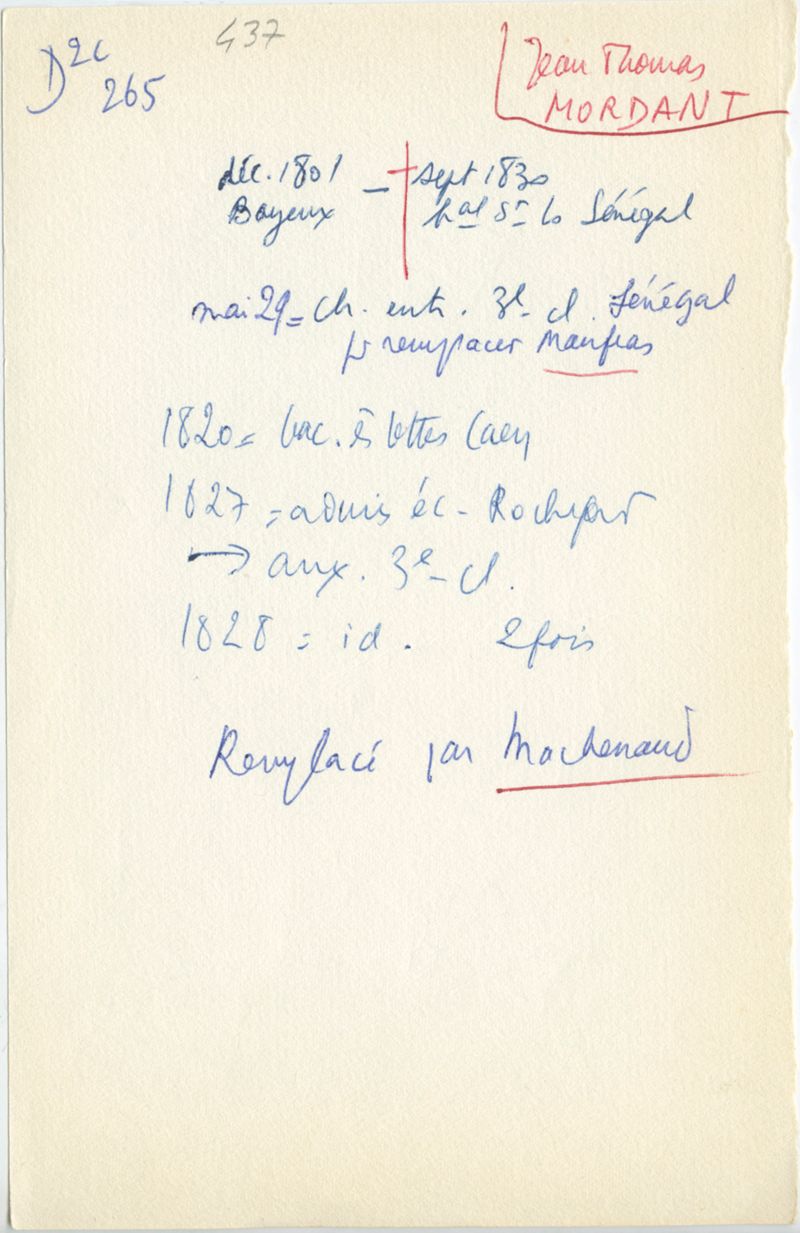 D2c
265
437
Jean Thomas
MORDANT
déc. 1801 – † sept 1830
Bayeux hal St Ls Sénégal
mai 29 = Ch. entr. 3e cl. Sénégal
pr remplacer Maufras
1820 = bac. ès lettes Caen
1827 = admis éc - Rochefort
→ aux. 3e cl.
1828 = id. 2 fois
Remplacé par Machenaud